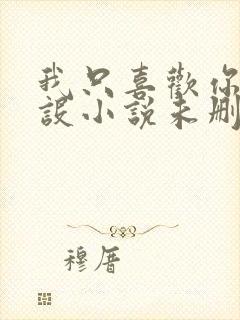 我只喜歡你
設小說未刪
穆厝